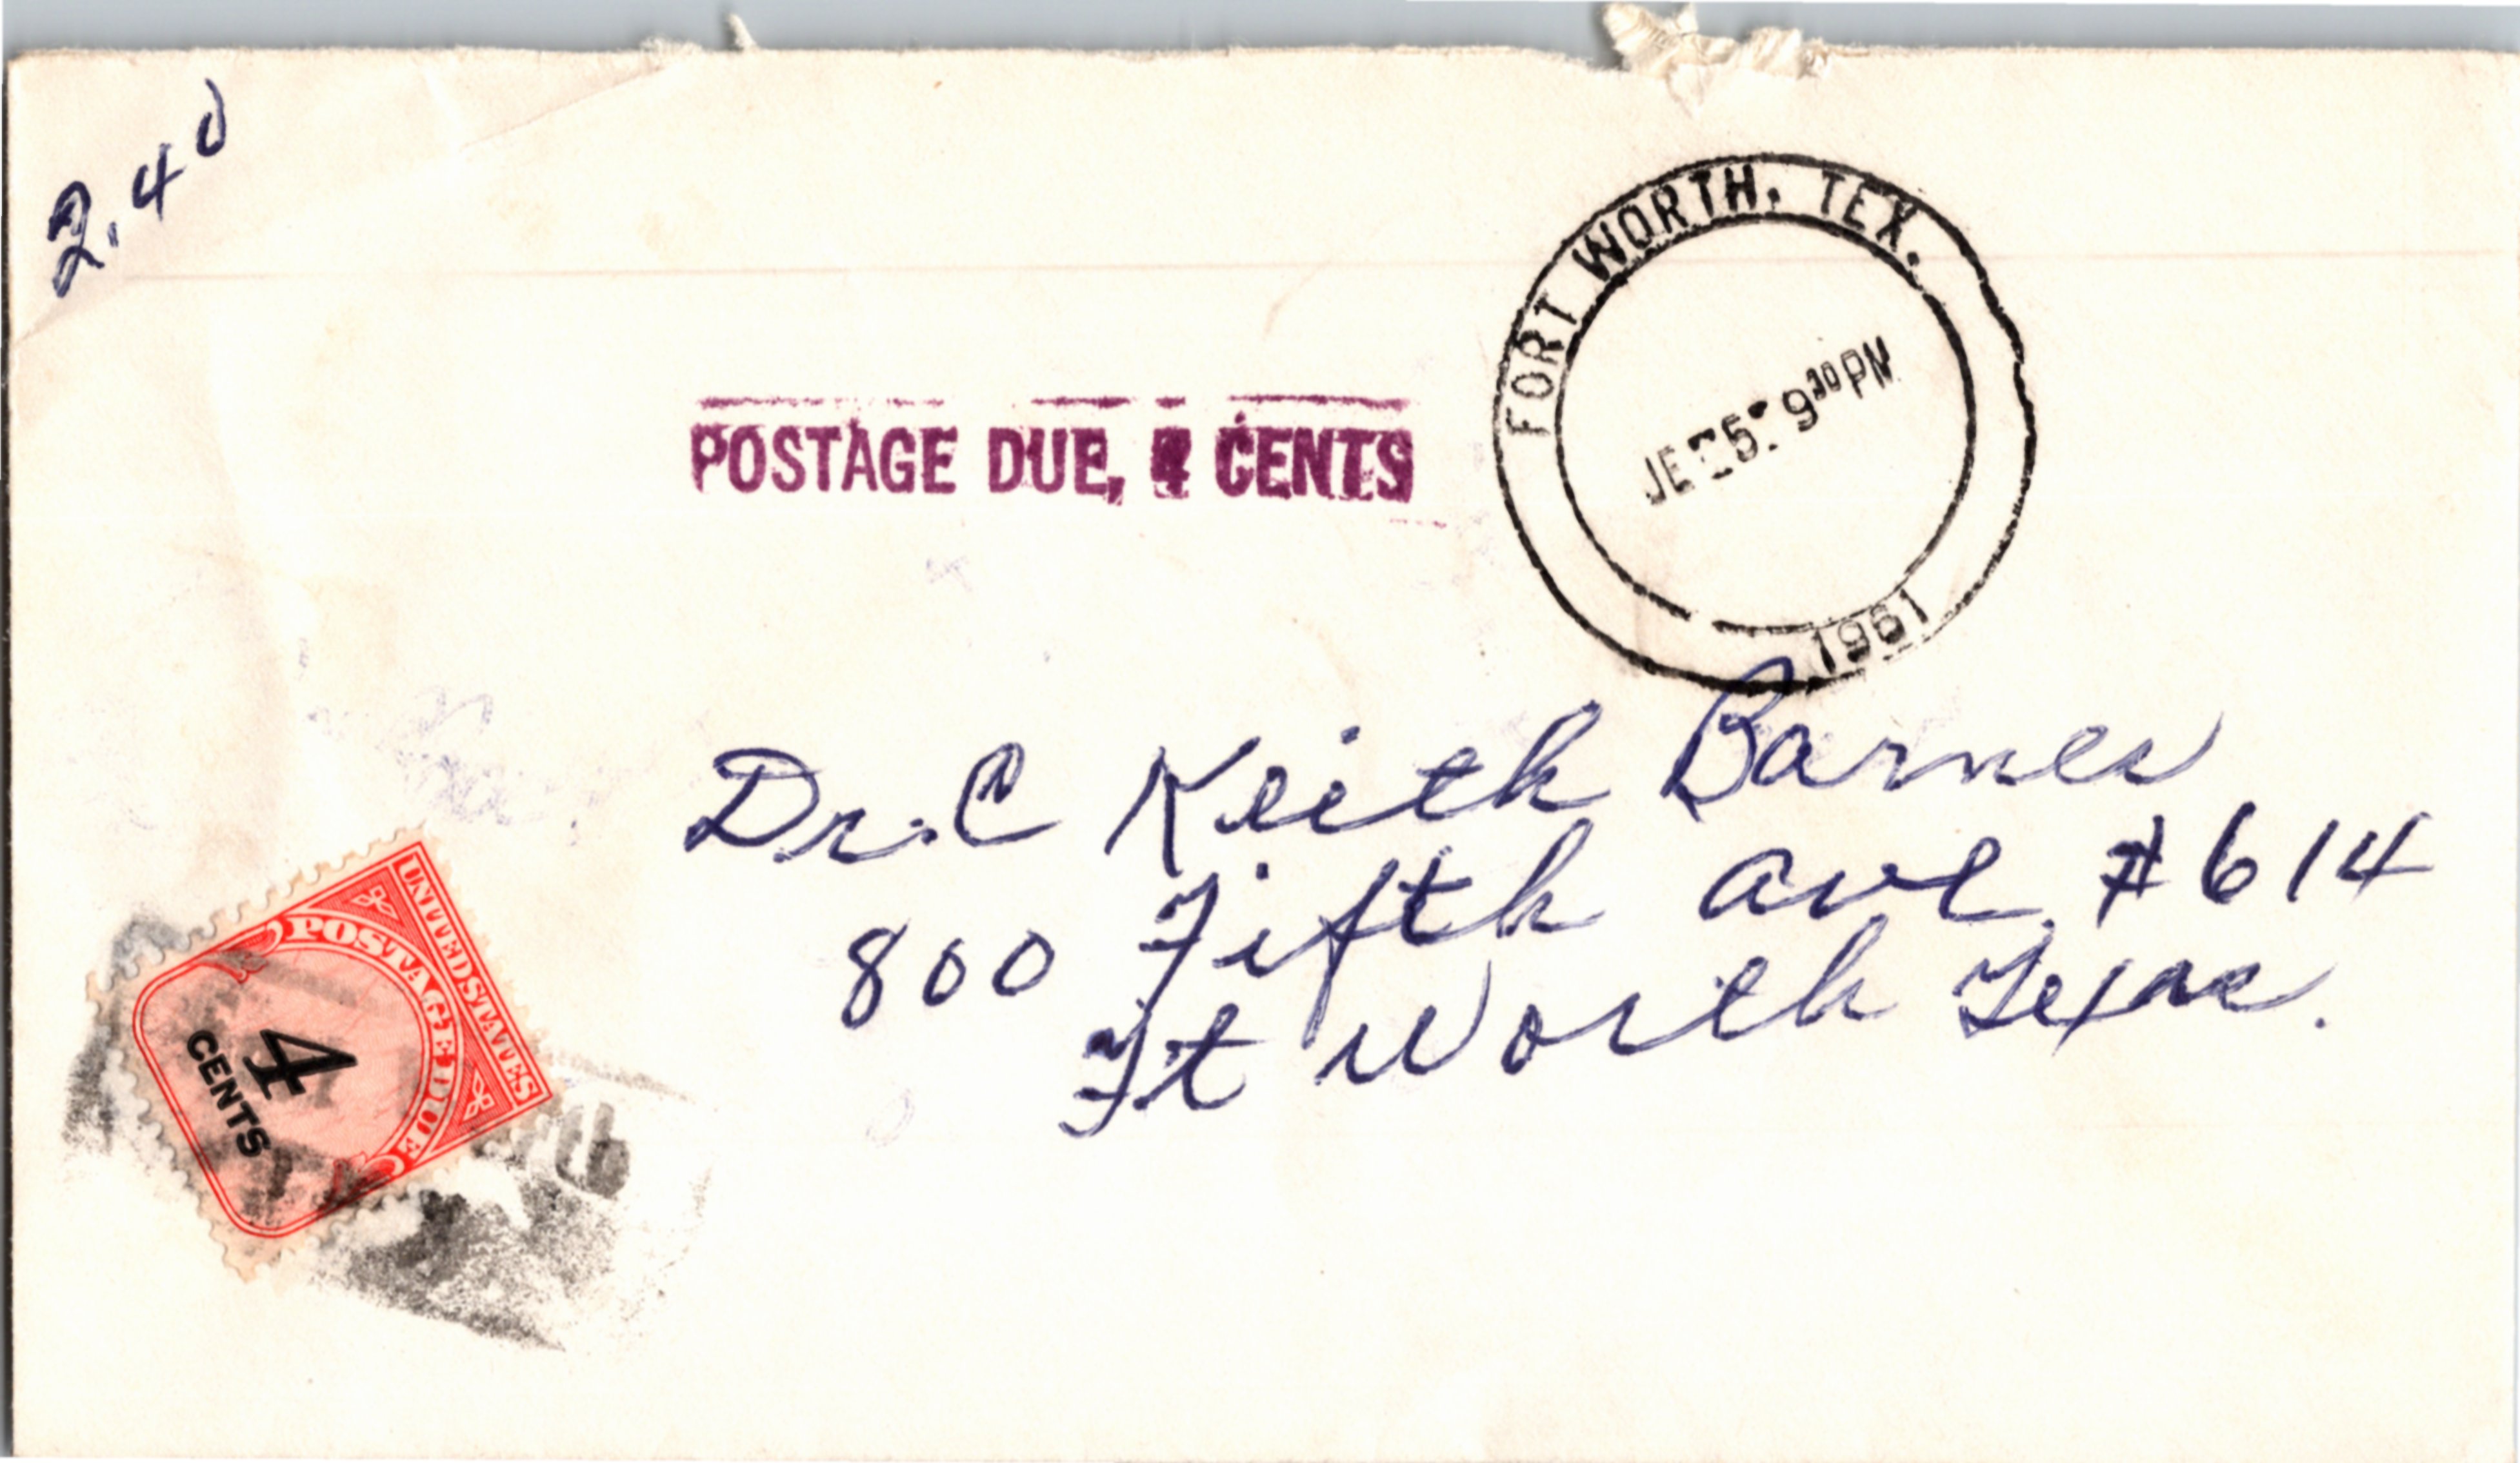 2.40
FORT WORTH, TEX.
9 30 PM
1961
POSTAGE DUE, 4 CENTS
Dr. C Keith Barnes
800 Fifth Ave. #614
Ft Worth Texas.
UNITED STATES
POSTAGE DUE
4
CENTS